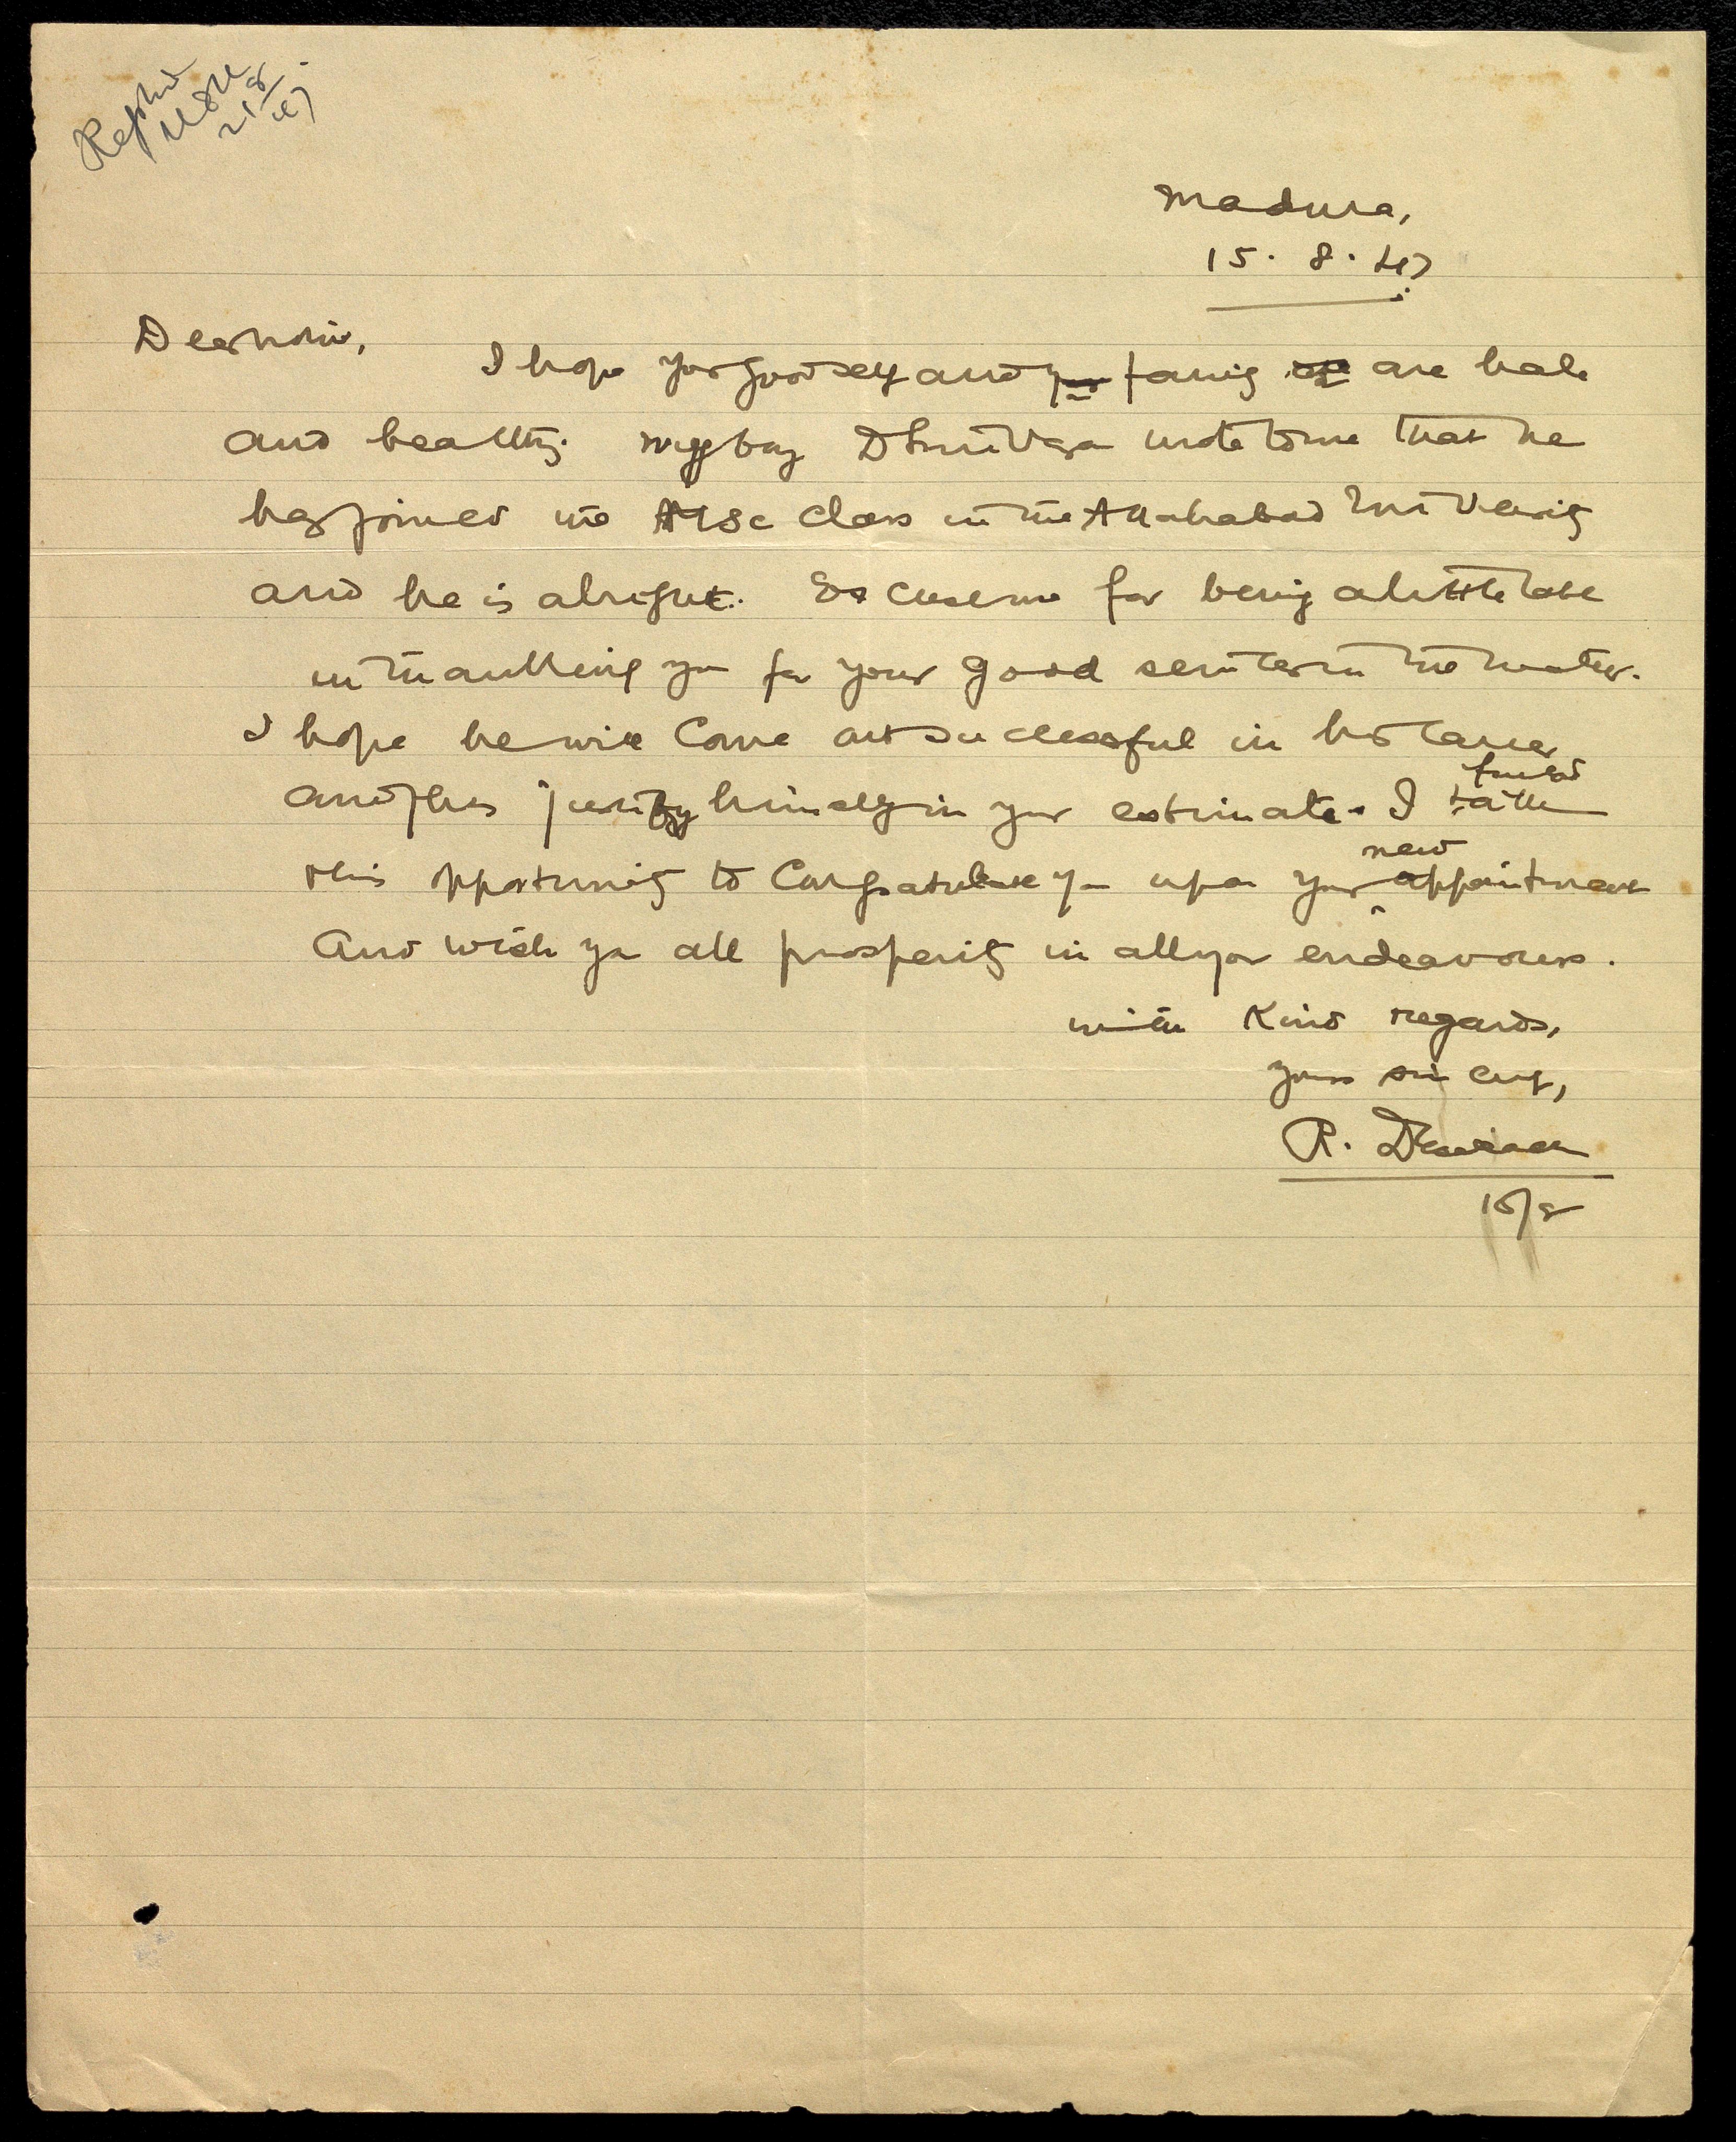 Replied
21/8/47
Madura,
15. 8. 47
Dear Sir,
I hope your good self and your family are hale
and healthy. My boy wrote to me that he
has joined the MSc class in the Allahabad University
and he is alright. Excuse me for being a little late
in thanking you for your good services in the matter.
I hope he will come out successful in his career
and thus justify himself in your estimate. I further take
this opportunity to congratulate you upon your new appointment
and wish you all prosperity in all your endeavours.
with kind regards,
yours sincerely,
R.
15/8